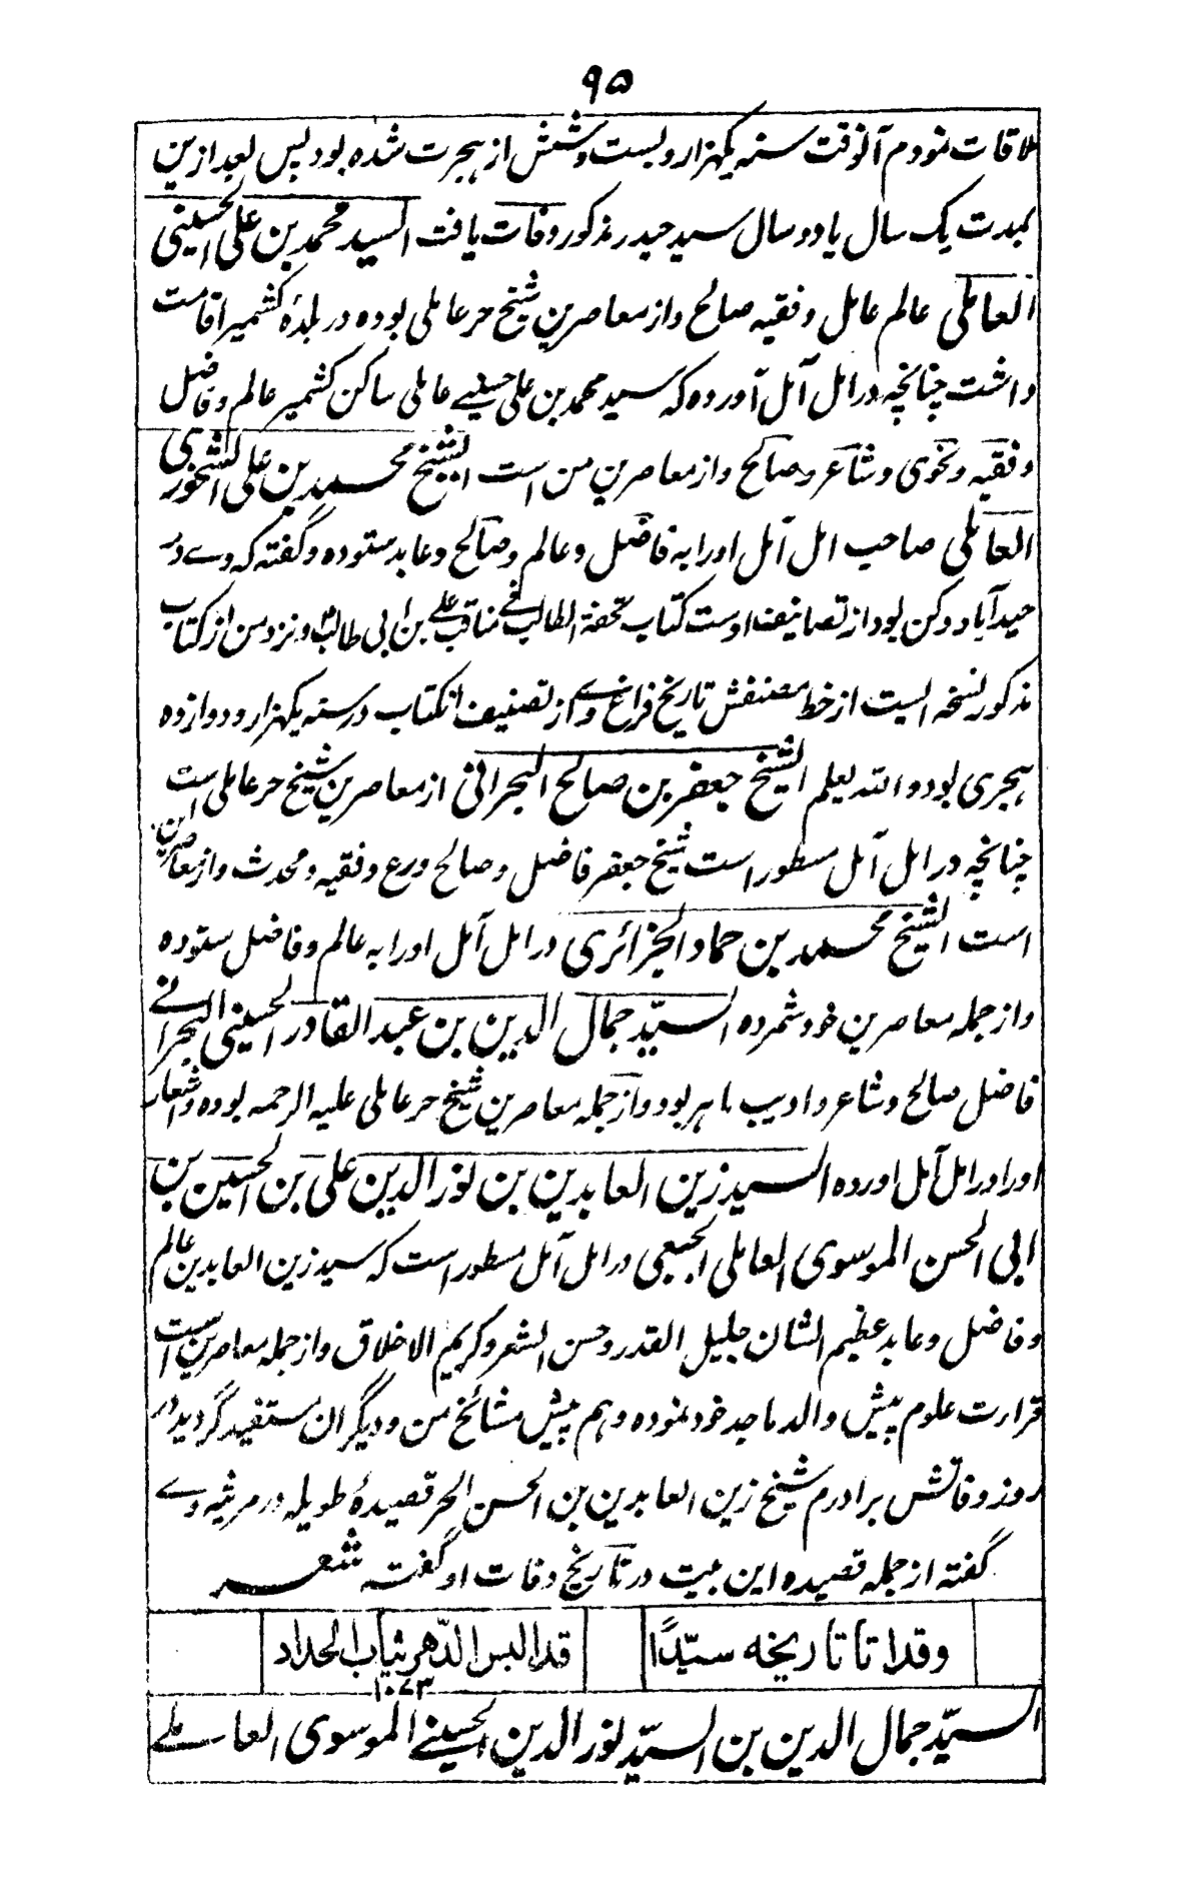 ۹۵
ملاقات نمودم آنوقت سنه یکهزار و بست و شش از هجرت شده بود پس بعد ازین
بمدت یک سال یا دو سال سید حیدر مذکور وفات یافت السید محمد بن علی الحسینی
العاملی عالم عامل و فقیه صالح و از معاصرین شیخ حر عاملی بوده در بلدۀ کشمیر اقامت
داشت چنانچه در امل آمل آورده که سید محمد بن علی حسینی عاملی ساکن کشمیر عالم و فاضل
و فقیه و نحوی و شاعر و صالح و از معاصرین من است الشیخ محمد بن علی الشحوری
العاملی صاحب امل آمل اورا به فاضل و عالم و صالح و عابد ستوده و گفته که وے در
حیدآباد دکن بود از تصانیف اوست کتاب تحفة الطالب فے مناقب علے بن ابی طالب و نزد من از کتاب
مذکور نسخه ایست از خط مصنفش تاریخ فراغ وے از تصنیف انکتاب در سنه یکهزار و دوازده
هجری بود و الله یعلم الشیخ جعفر بن صالح البحرانی از معاصرین شیخ حر عاملی است
چنانچه در امل آمل مسطور است شیخ جعفر فاضل و صالح ورع و فقیه و محدث و از معاصرین
است الشیخ محمد بن حماد الجزائری در امل آمل اورا به عالم و فاضل ستوده
و از جمله معاصرین خود شمرده السیّد جمال الدین بن عبد القادر الحسینی البحرانے
فاضل صالح و شاعر و ادیب ماهر بود و از جمله معاصرین شیخ حر عاملی علیه الرحمه بوده و اشعار
اورا در امل آمل اورده السید زین العابدین بن نور الدین علی بن الحسین بن
ابی الحسن الموسوی العاملی الجبعی در امل آمل مسطور است که سید زین العابدین عالم
و فاضل و عابد عظیم الشان جلیل القدر و حسن الشعر و کریم الاخلاق و از جمله معاصرین است
قرارت علوم پیش والد ماجد خود نموده و هم پیش مشائخ من و دیگران مستفید گردید در
روز وفاتش برادرم شیخ زین العابدین بن الحسن الحر قصیدۀ طویله در مرثیه وے
گفته از جمله قصیده این بیت در تاریخ وفات او گفته شعر
وقد اتا تاریخه سیّدًا قد البس الدّهر ثیاب الحداد
۱۰۷۳
السیّد جمال الدین بن السیّد نور الدین الحسینے الموسوی العاملے